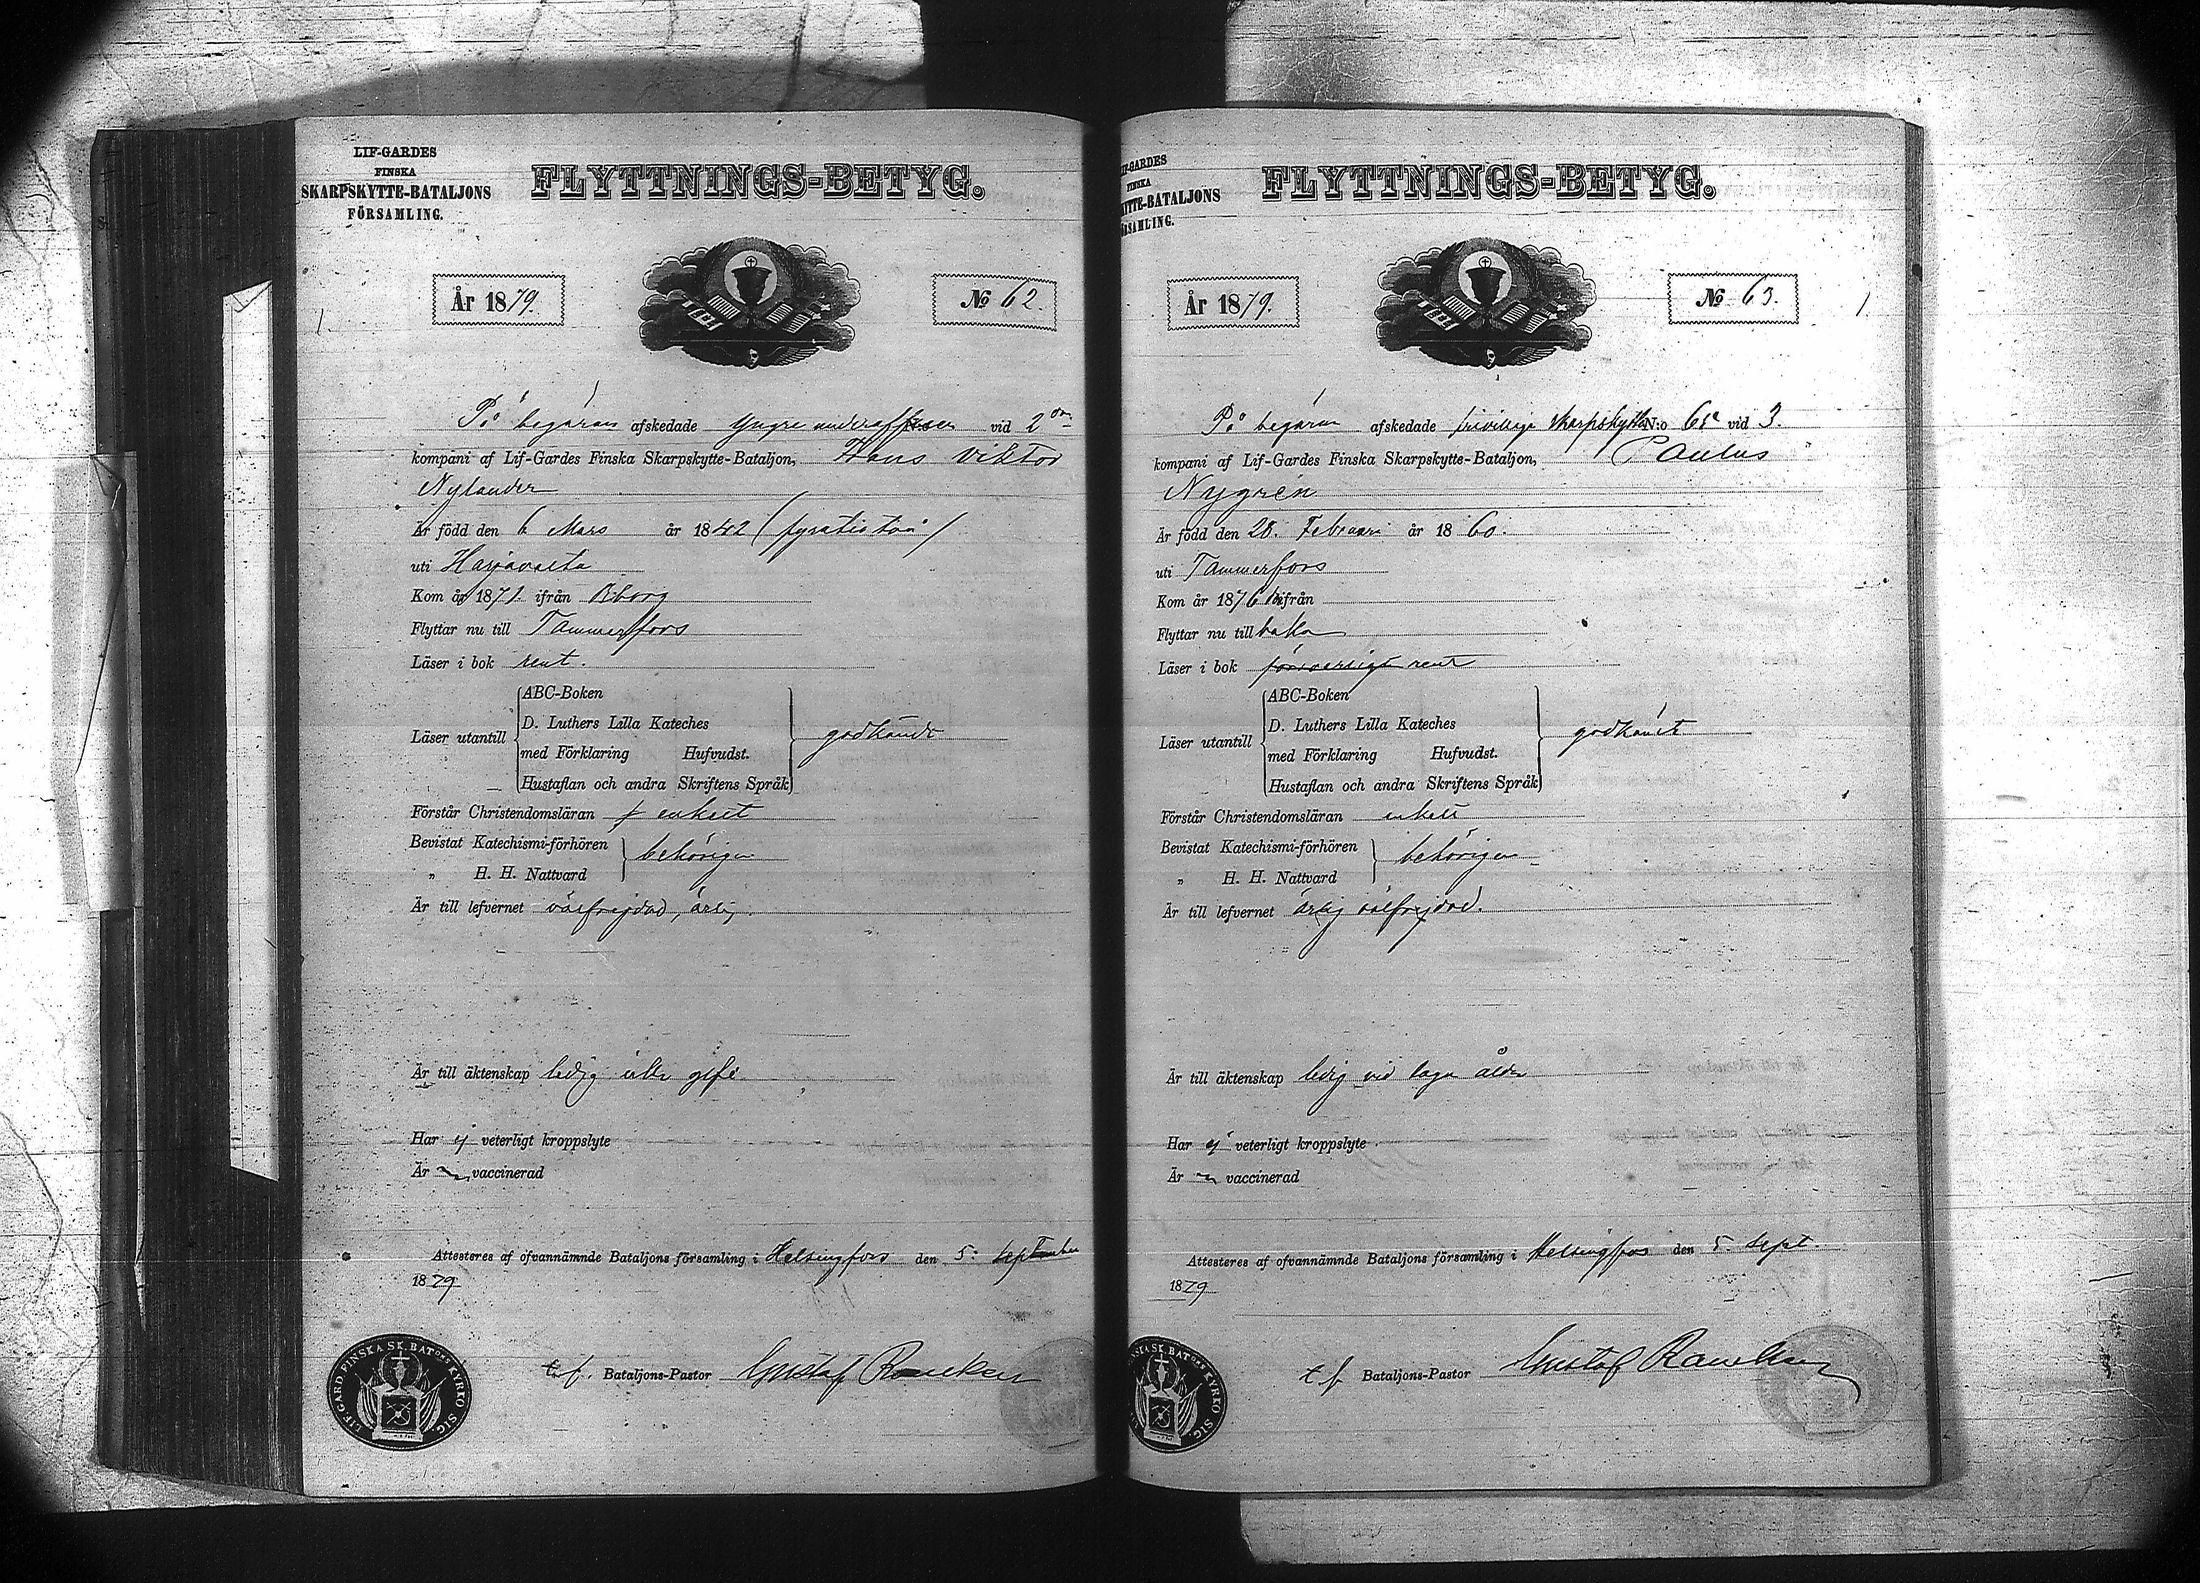 LIF-GARDES
FINSKA
SKARPSKYTTE-BATALJONS
FÖRSAMLING.
FLYTTNINGS-BETYG.
År 1879.
No 62.
På begäran afskedade yngre underofficeren vid 2
kompani af Lif-Gardes Finska Skarpskytte-Bataljon, Frans Viktor
Nylander
Är född den 6 Mars år 1842 (fyratiotvå)
uti Harjavalta
Kom år 1871 ifrån B:borg
Flyttar nu till Tammerfors
Läser i bok rent.
Läser utantill
ABC-Boken
D. Luthers Lilla Kateches
med Förklaring Hufvudst.
Hustaflan och andra Skriftens Språk
godkändt
Förstår Christendomsläran enkelt
Bevistat Katechismi-förhören
„ H. H. Nattvard
behörigen
Är till lefvernet välfrejdad, ärlig.
Är till äktenskap ledig icke gift
Har ej veterligt kroppslyte
Är vaccinerad
Attesteras af ofvannämnde Bataljons församling i Helsingfors den 5. September
1879
t.f. Bataljons-Pastor Gustaf Rancken
LIF-GARD. FINSKA SK. BAT:ONS KYRKO SIG.
GARDES
FINSKA
YTTE-BATALJONS
RSAMLING.
FLYTTNINGS-BETYG.
År 1879.
No 63.
På begäran afskedade frivillige skarpskytten N:o 65 vid 3.
kompani af Lif-Gardes Finska Skarpskytte-Bataljon, Paulus
Nygrén
Är född den 28. Februari år 1860.
uti Tammerfors
Kom år 1876 ifrån
Flyttar nu tillbaka
Läser i bok försvarligt rent
Läser utantill
ABC-Boken
D. Luthers Lilla Kateches
med Förklaring Hufvudst.
Hustaflan och andra Skriftens Språk
godkändt
Förstår Christendomsläran enkelt
Bevistat Katechismi-förhören
„ H. H. Nattvard
behörigen
Är till lefvernet ärlig välfrejdad.
Är till äktenskap ledig vid laga ålder
Har ej veterligt kroppslyte
Är vaccinerad
Attesteras af ofvannämnde Bataljons församling i Helsingfors den 5. Sept.
1879
t f Bataljons-Pastor Gustaf Rancken
SKA SK. BAT:ONS KYRKO SIG.